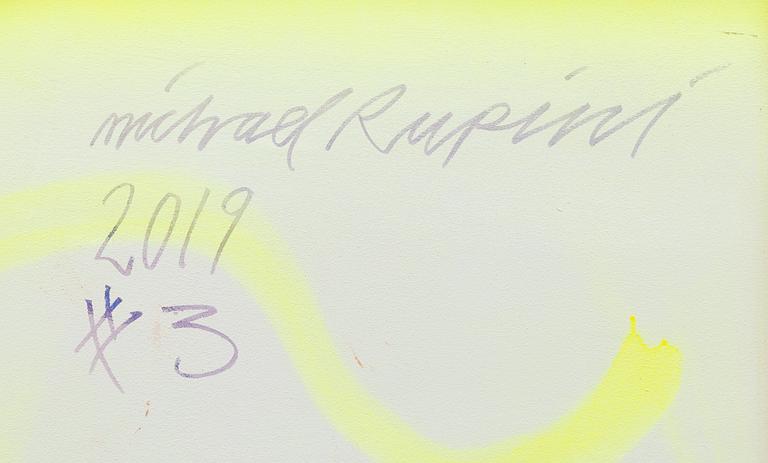 michael Rupini
2019
#3